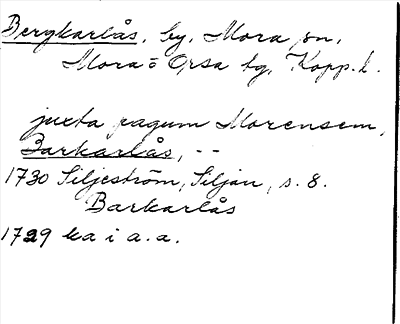 Bergkarlås, by, Mora sn,
Mora o Orsa tg, Kopp. l.
juxta pagum Morensem,
Barkarlås, --
1730 Siljeström, Siljan, s. 8.
Barkarlås
1729 ka i a.a.